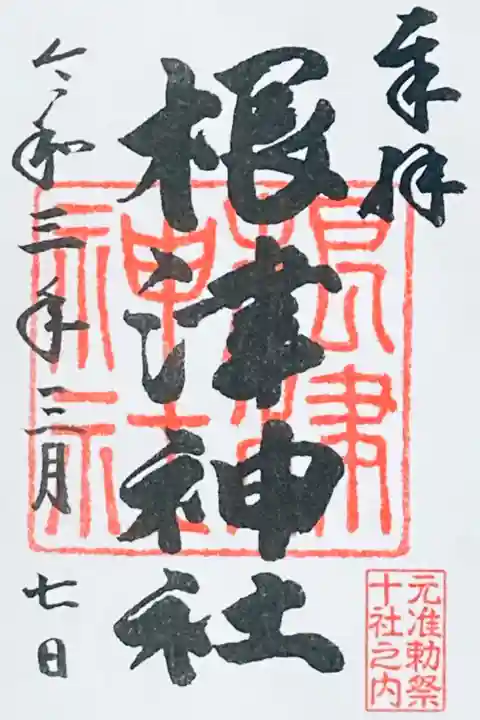 奉拝
根津神社
根津
神社
元准勅祭
十社之内
令和三年三月七日